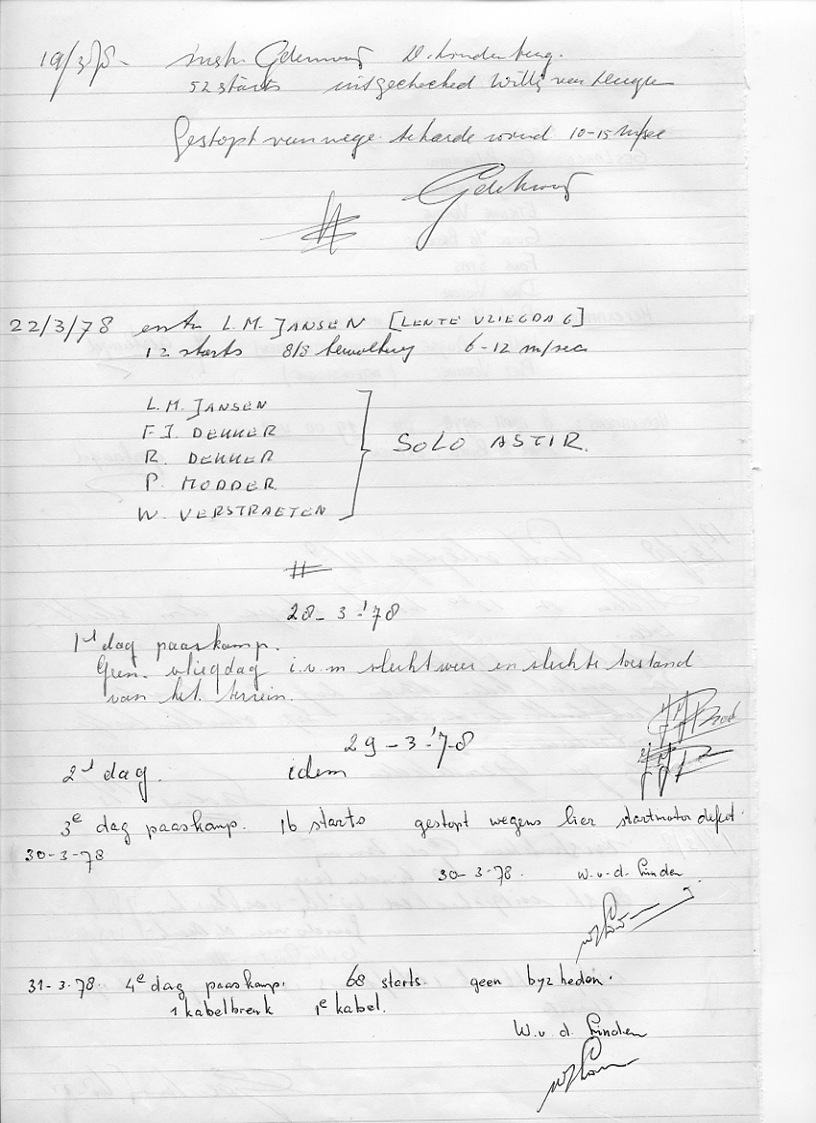 19/3/78- instr. D. Londenberg.
52 starts uitgechecked Willy van
Gestopt vanwege te harde wind 10-15 m/sec
22/3/78 instr L.M. JANSEN [LENTE VLIEGDAG]
12 starts 8/8 bewolking 6-12 m/sec
L.M. JANSEN
F.J. DEKKER
R. DEKKER
P. MODDER
W. VERSTRAETEN
SOLO ASTIR.
28-3-'78
1e dag paaskamp.
Geen vliegdag i.v.m slecht weer en slechte toestand
van het terrein.
29-3-'78
2e dag. idem
3e dag paaskamp. 16 starts gestopt wegens lier startmotor defect.
30-3-78
30-3-78. W.v.d. Linden
31-3-78. 4e dag paaskamp. 68 starts. geen byzheden.
1 kabelbreuk 1e kabel.
W.v.d. Linden